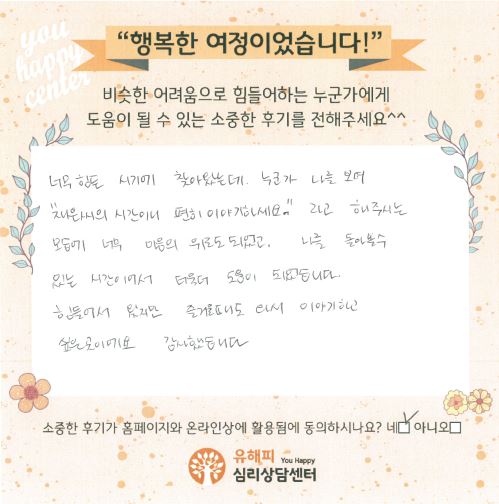 you
happy
center
“행복한 여정이었습니다!”
비슷한 어려움으로 힘들어하는 누군가에게
도움이 될 수 있는 소중한 후기를 전해주세요^^
너무 힘든 시기에 찾아왔는데. 누군가 나를 보며
" 시간이니 편히 이야기하세요." 라고 해주시는
모습에 너무 마음의 위로도 되었고. 나를 돌아볼수
있는 시간이어서 더욱더 도움이 되었습니다.
힘들어서 왔지만 즐거울때도 다시 이야기하고
싶은곳이에요 감사했습니다
소중한 후기가 홈페이지와 온라인상에 활용됨에 동의하시나요? 네☑ 아니오☐
유해피 You Happy
심리상담센터